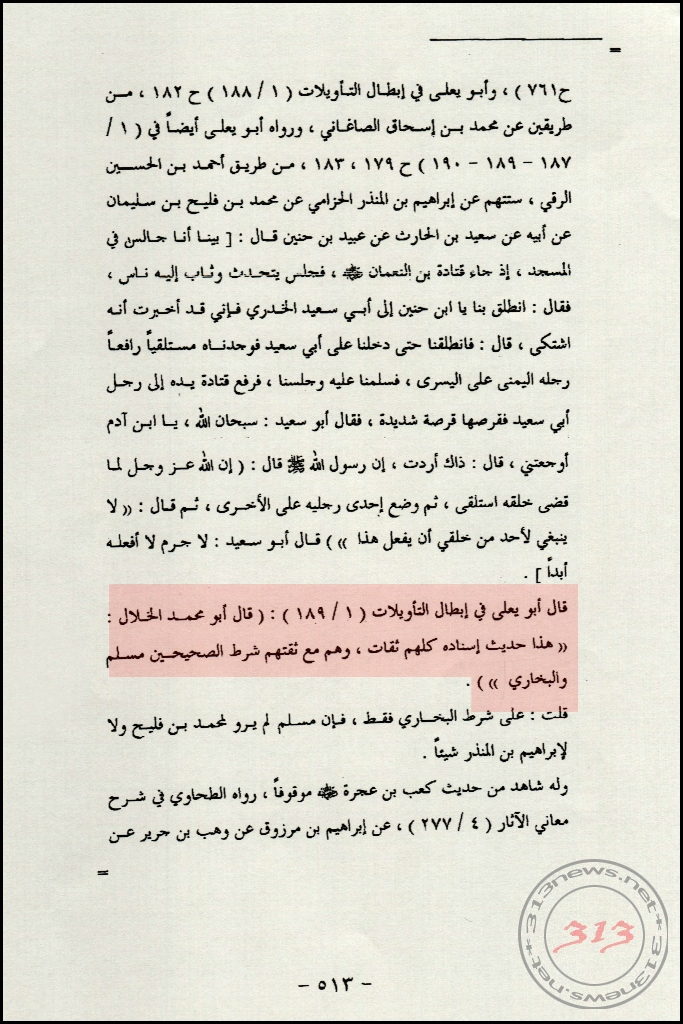 =
ح٧٦١ ) ، وأبو يعلى في إبطال التأويلات ( ١ / ١٨٨ ) ح ١٨٢ ، من
طريقين عن محمد بن إسحاق الصاغاني ، ورواه أبو يعلى أيضاً في ( ١ /
١٨٧ - ١٨٩ - ١٩٠ ) ح ١٧٩ ، ١٨٣ ، من طريق أحمد بن الحسين
الرقي ، ستتهم عن إبراهيم بن المنذر الحزامي عن محمد بن فليح بن سليمان
عن أبيه عن سعيد بن الحارث عن عبيد بن حنين قال : [ بينا أنا جالس في
المسجد ، إذ جاء قتادة بن النعمان ﷺ ، فجلس يتحدث وثاب إليه ناس ،
فقال : انطلق بنا يا ابن حنين إلى أبي سعيد الخدري فإني قد أخبرت أنه
اشتكى ، قال : فانطلقنا حتى دخلنا على أبي سعيد فوجدناه مستلقياً رافعاً
رجله اليمنى على اليسرى ، فسلمنا عليه وجلسنا ، فرفع قتادة يده إلى رجل
أبي سعيد فقرصها قرصة شديدة ، فقال أبو سعيد : سبحان الله ، يا ابن آدم
أوجعتني ، قال : ذاك أردت ، إن رسول الله ﷺ قال : ( إن الله عز وجل لما
قضى خلقه استلقى ، ثم وضع إحدى رجليه على الأخرى ، ثم قال : (( لا
ينبغي لأحد من خلقي أن يفعل هذا )) ) قال أبو سعيد : لا جرم لا أفعله
أبداً ] .
قال أبو يعلى في إبطال التأويلات ( ١ / ١٨٩ ) : ( قال أبو محمد الخلال :
(( هذا حديث إسناده كلهم ثقات ، وهم مع ثقتهم شرط الصحيحين مسلم
والبخاري )) ) .
قلت : على شرط البخاري فقط ، فإن مسلم لم يرو لمحمد بن فليح ولا
لإبراهيم بن المنذر شيئاً .
وله شاهد من حديث كعب بن عجرة ﷺ موقوفاً ، رواه الطحاوي في شرح
معاني الآثار ( ٤ / ٢٧٧ ) ، عن إبراهيم بن مرزوق عن وهب بن جرير عن
=
- ٥١٣ -
313news.net
313
313news.net